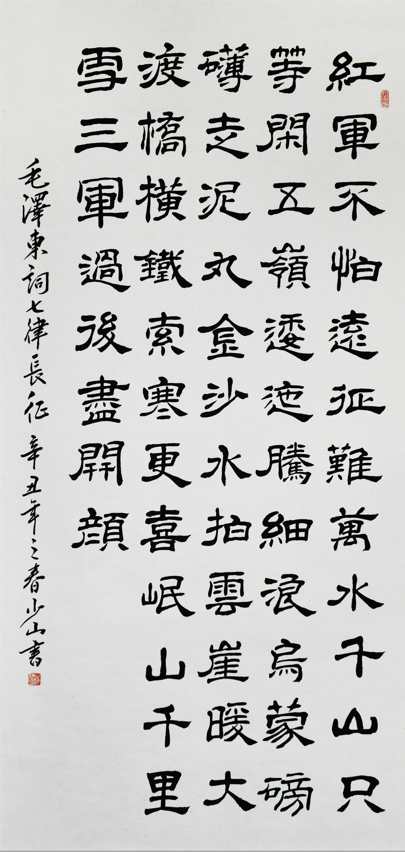 紅軍不怕遠征難萬水千山只
等閑五嶺逶迤騰細浪烏蒙磅
礴走泥丸金沙水拍雲崖暖大
渡橋橫鐵索寒更喜岷山千里
雪三軍過後盡開顔
毛澤東詞七律長征 辛丑年之春少山書